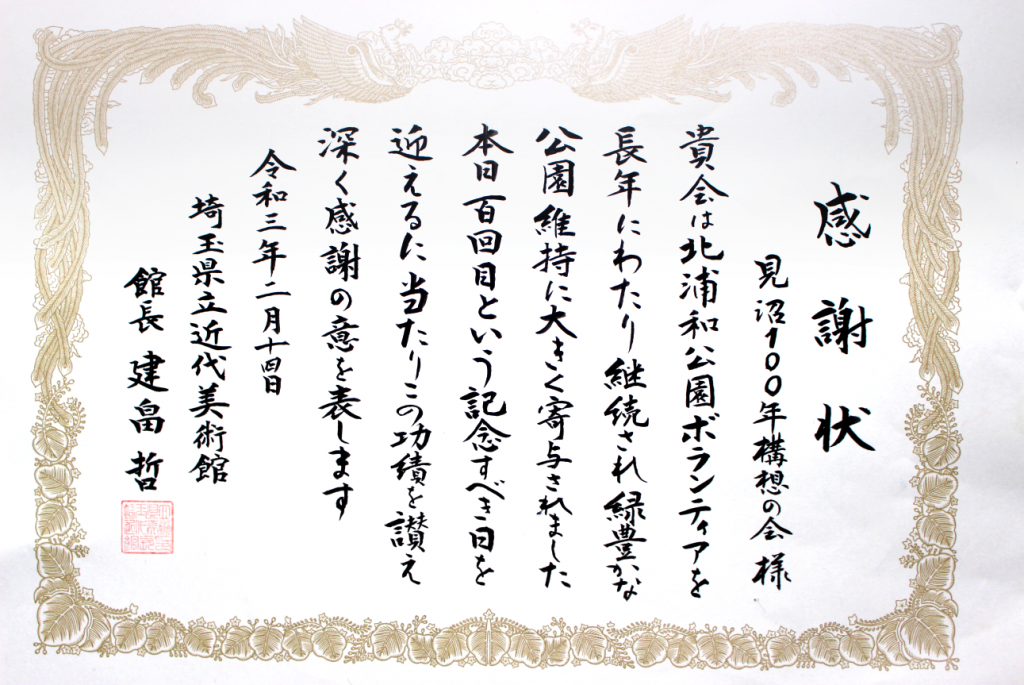 感謝状
見沼100年構想の会 様
貴会は北浦和公園ボランティアを
長年にわたり継続され緑豊かな
公園維持に大きく寄与されました
本日百回目という記念すべき日を
迎えるに当たりこの功績を讃え
深く感謝の意を表します
令和三年二月十四日
埼玉県立近代美術館
館長 建畠 哲